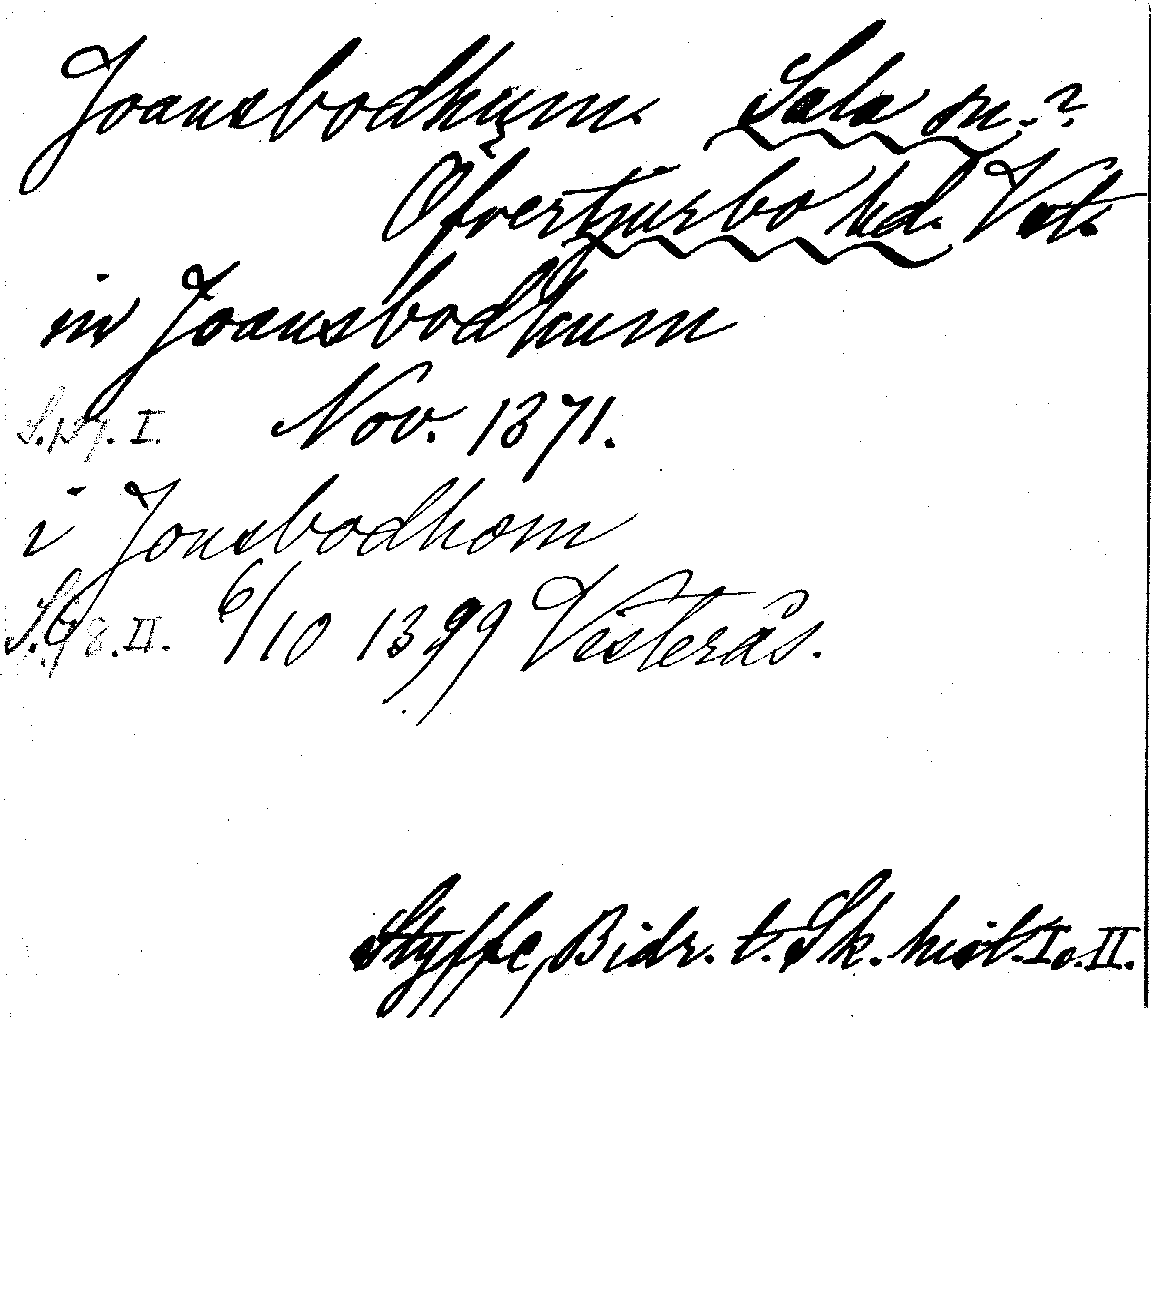 Joansbodhum. Sala sn.?
Öfvertjurbo hd. Vstm.
in Joansbodhum
S. 129. I. Nov. 1371.
i Jonsbodhom
S. 98. II. 6/10 1399 Vesterås.
Styffe, Bidr. t. Sk. hist. I o. II.